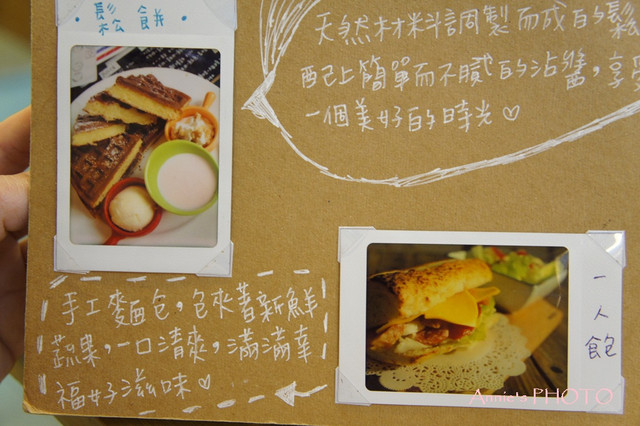 • 鬆餅 •
天然材料調製而成的鬆
配上簡單而不膩的沾醬，享受
一個美好的時光♡
手工麵包，包夾著新鮮
蔬果，一口清爽，滿滿幸
福好滋味♡
一人飽
Annieta PHOTO